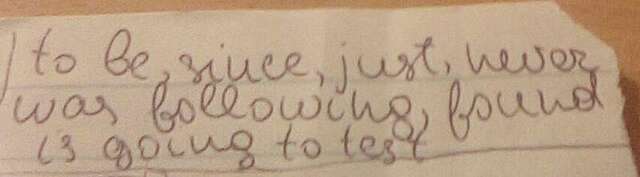 to be, since, just, never
was following, found
is going to test